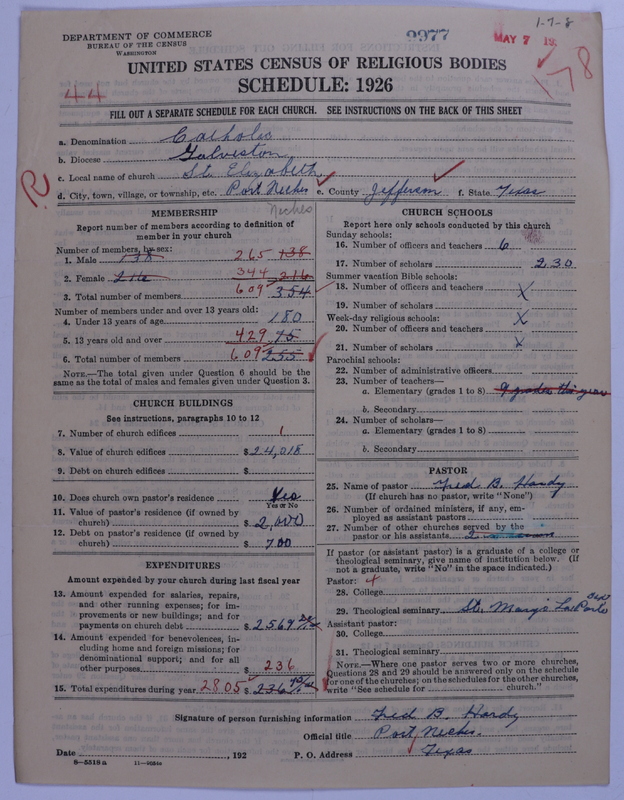 1-7-8
DEPARTMENT OF COMMERCE
BUREAU OF THE CENSUS
WASHINGTON
9977
MAY 7 19
178
UNITED STATES CENSUS OF RELIGIOUS BODIES
SCHEDULE: 1926
44
FILL OUT A SEPARATE SCHEDULE FOR EACH CHURCH. SEE INSTRUCTIONS ON THE BACK OF THIS SHEET
a. Denomination Catholic
b. Diocese Galveston
c. Local name of church St. Elizabeth
d. City, town, village, or township, etc. Port Neches e. County Jefferson f. State Texas
R
Neches
MEMBERSHIP
Report number of members according to definition of
member in your church
Number of members, by sex:
1. Male 138 265 138
2. Female 216 344 216
3. Total number of members 609 354
Number of members under and over 13 years old:
4. Under 13 years of age 180
5. 13 years old and over 429 75
6. Total number of members 609 255
NOTE.—The total given under Question 6 should be
same as the total of males and females given under Question 3.
CHURCH BUILDINGS
See instructions, paragraphs 10 to 12
7. Number of church edifices 1
8. Value of church edifices $24,018
9. Debt on church edifices $
10. Does church own pastor's residence Yes
Yes or No
11. Value of pastor's residence (if owned by
church) $2,000
12. Debt on pastor's residence (if owned by
church) $700
EXPENDITURES
Amount expended by your church during last fiscal year
13. Amount expended for salaries, repairs,
and other running expenses; for im-
provements or new buildings; and for
payments on church debt $2569
14. Amount expended for benevolences, in-
cluding home and foreign missions; for
denominational support; and for all
other purposes $236
15. Total expenditures during year 2805 $236
CHURCH SCHOOLS
Report here only schools conducted by this church
Sunday schools:
16. Number of officers and teachers 6
17. Number of scholars 230
Summer vacation Bible schools:
18. Number of officers and teachers X
19. Number of scholars
Week-day religious schools: X
20. Number of officers and teachers
21. Number of scholars X
Parochial schools:
22. Number of administrative officers
23. Number of teachers—
a. Elementary (grades 1 to 8) 9 grades this year
b. Secondary
24. Number of scholars—
a. Elementary (grades 1 to 8)
b. Secondary
PASTOR
25. Name of pastor Fred B. Hardy
(If church has no pastor, write "None")
26. Number of ordained ministers, if any, em-
ployed as assistant pastors
27. Number of other churches served by the
pastor or his assistants 2
If pastor (or assistant pastor) is a graduate of a college or
theological seminary, give name of institution below. (If
not a graduate, write "No" in the space indicated.)
Pastor:
28. College
29. Theological seminary St. Mary's La Porte
Assistant pastor:
30. College
31. Theological seminary
NOTE.—Where one pastor serves two or more churches,
Questions 28 and 29 should be answered only on the schedule
for one of the churches; on the schedules for the other churches,
write "See schedule for church."
Signature of person furnishing information Fred B. Hardy
Official title Port Neches
Date , 192 P. O. Address Texas
8—5518 a 11—9034c